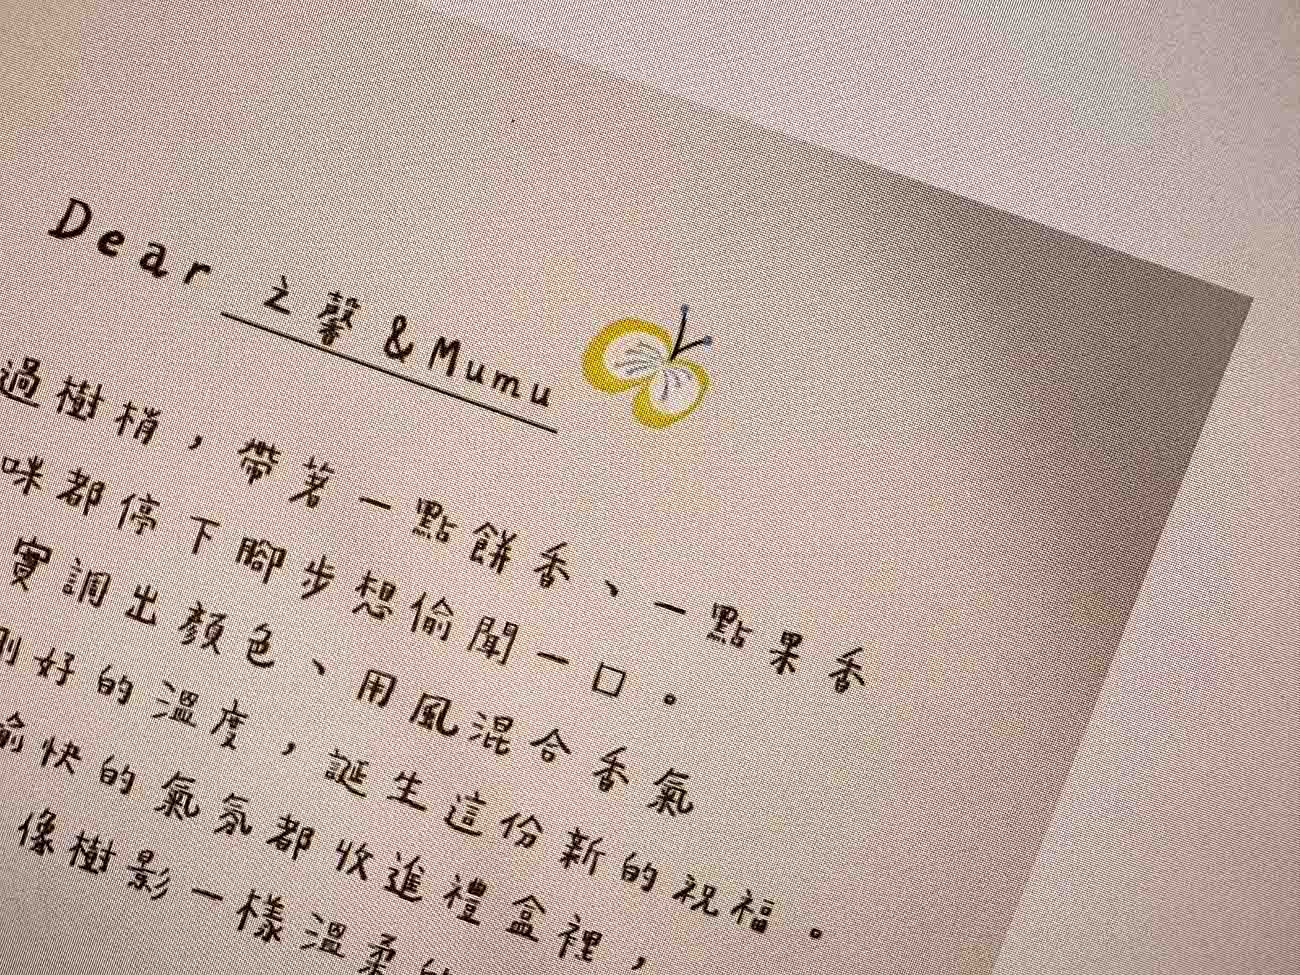 Dear 之馨&Mumu
過樹梢，帶著一點餅香、一點果香
咪都停下腳步想偷聞一口。
實調出顏色、用風混合香氣
剛好的溫度，誕生這份新的祝福。
愉快的氣氛都收進禮盒裡，
像樹影一樣溫柔的